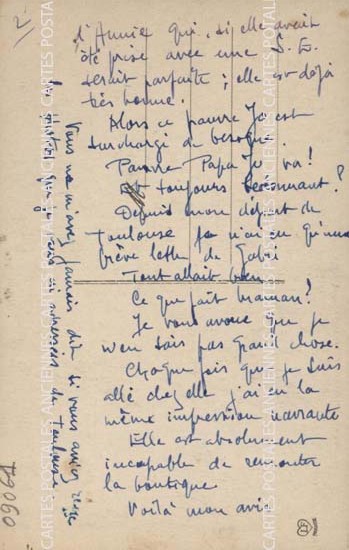 2
d'Annie qui, si elle avait
été prise avec une
serait parfaite ; elle est déjà
très bonne.
Alors ce pauvre Jo est
surchargé de besogne.
Pauvre Papa Jo va !
Est toujours ?
Depuis mon départ de
Toulouse je n'ai eu qu'une
brève lettre de Gaby
Tout allait bien.
Ce que fait maman ?
Je vous avoue que je
n'en sais pas grand chose.
Chaque fois que je suis
allé chez elle j'ai eu la
même impression navrante
Elle est absolument
incapable de remonter
la boutique.
Voilà mon avis
Vous ne m'avez jamais dit si vous aviez reçu
de Toulouse
09061
CARTES POSTALES ANCIENNES